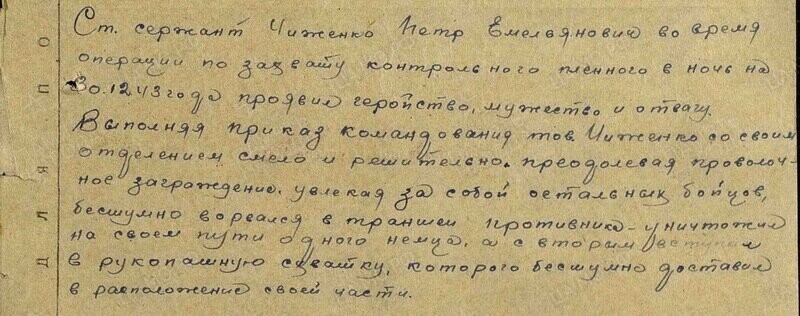 Ст. сержант Чиженко Петр Емельянович во время
операции по захвату контрольного пленного в ночь на
30.12.43 года проявил геройство, мужество и отвагу.
Выполняя приказ командования тов. Чиженко со своим
отделением смело и решительно. преодолевая проволоч-
ное заграждение. увлекая за собой остальных бойцов,
бесшумно ворвался в траншеи противника - уничтожил
на своем пути одного немца, а с вторым вступил
в рукопашную схватку, которого бесшумно доставил
в расположение своей части.
для по